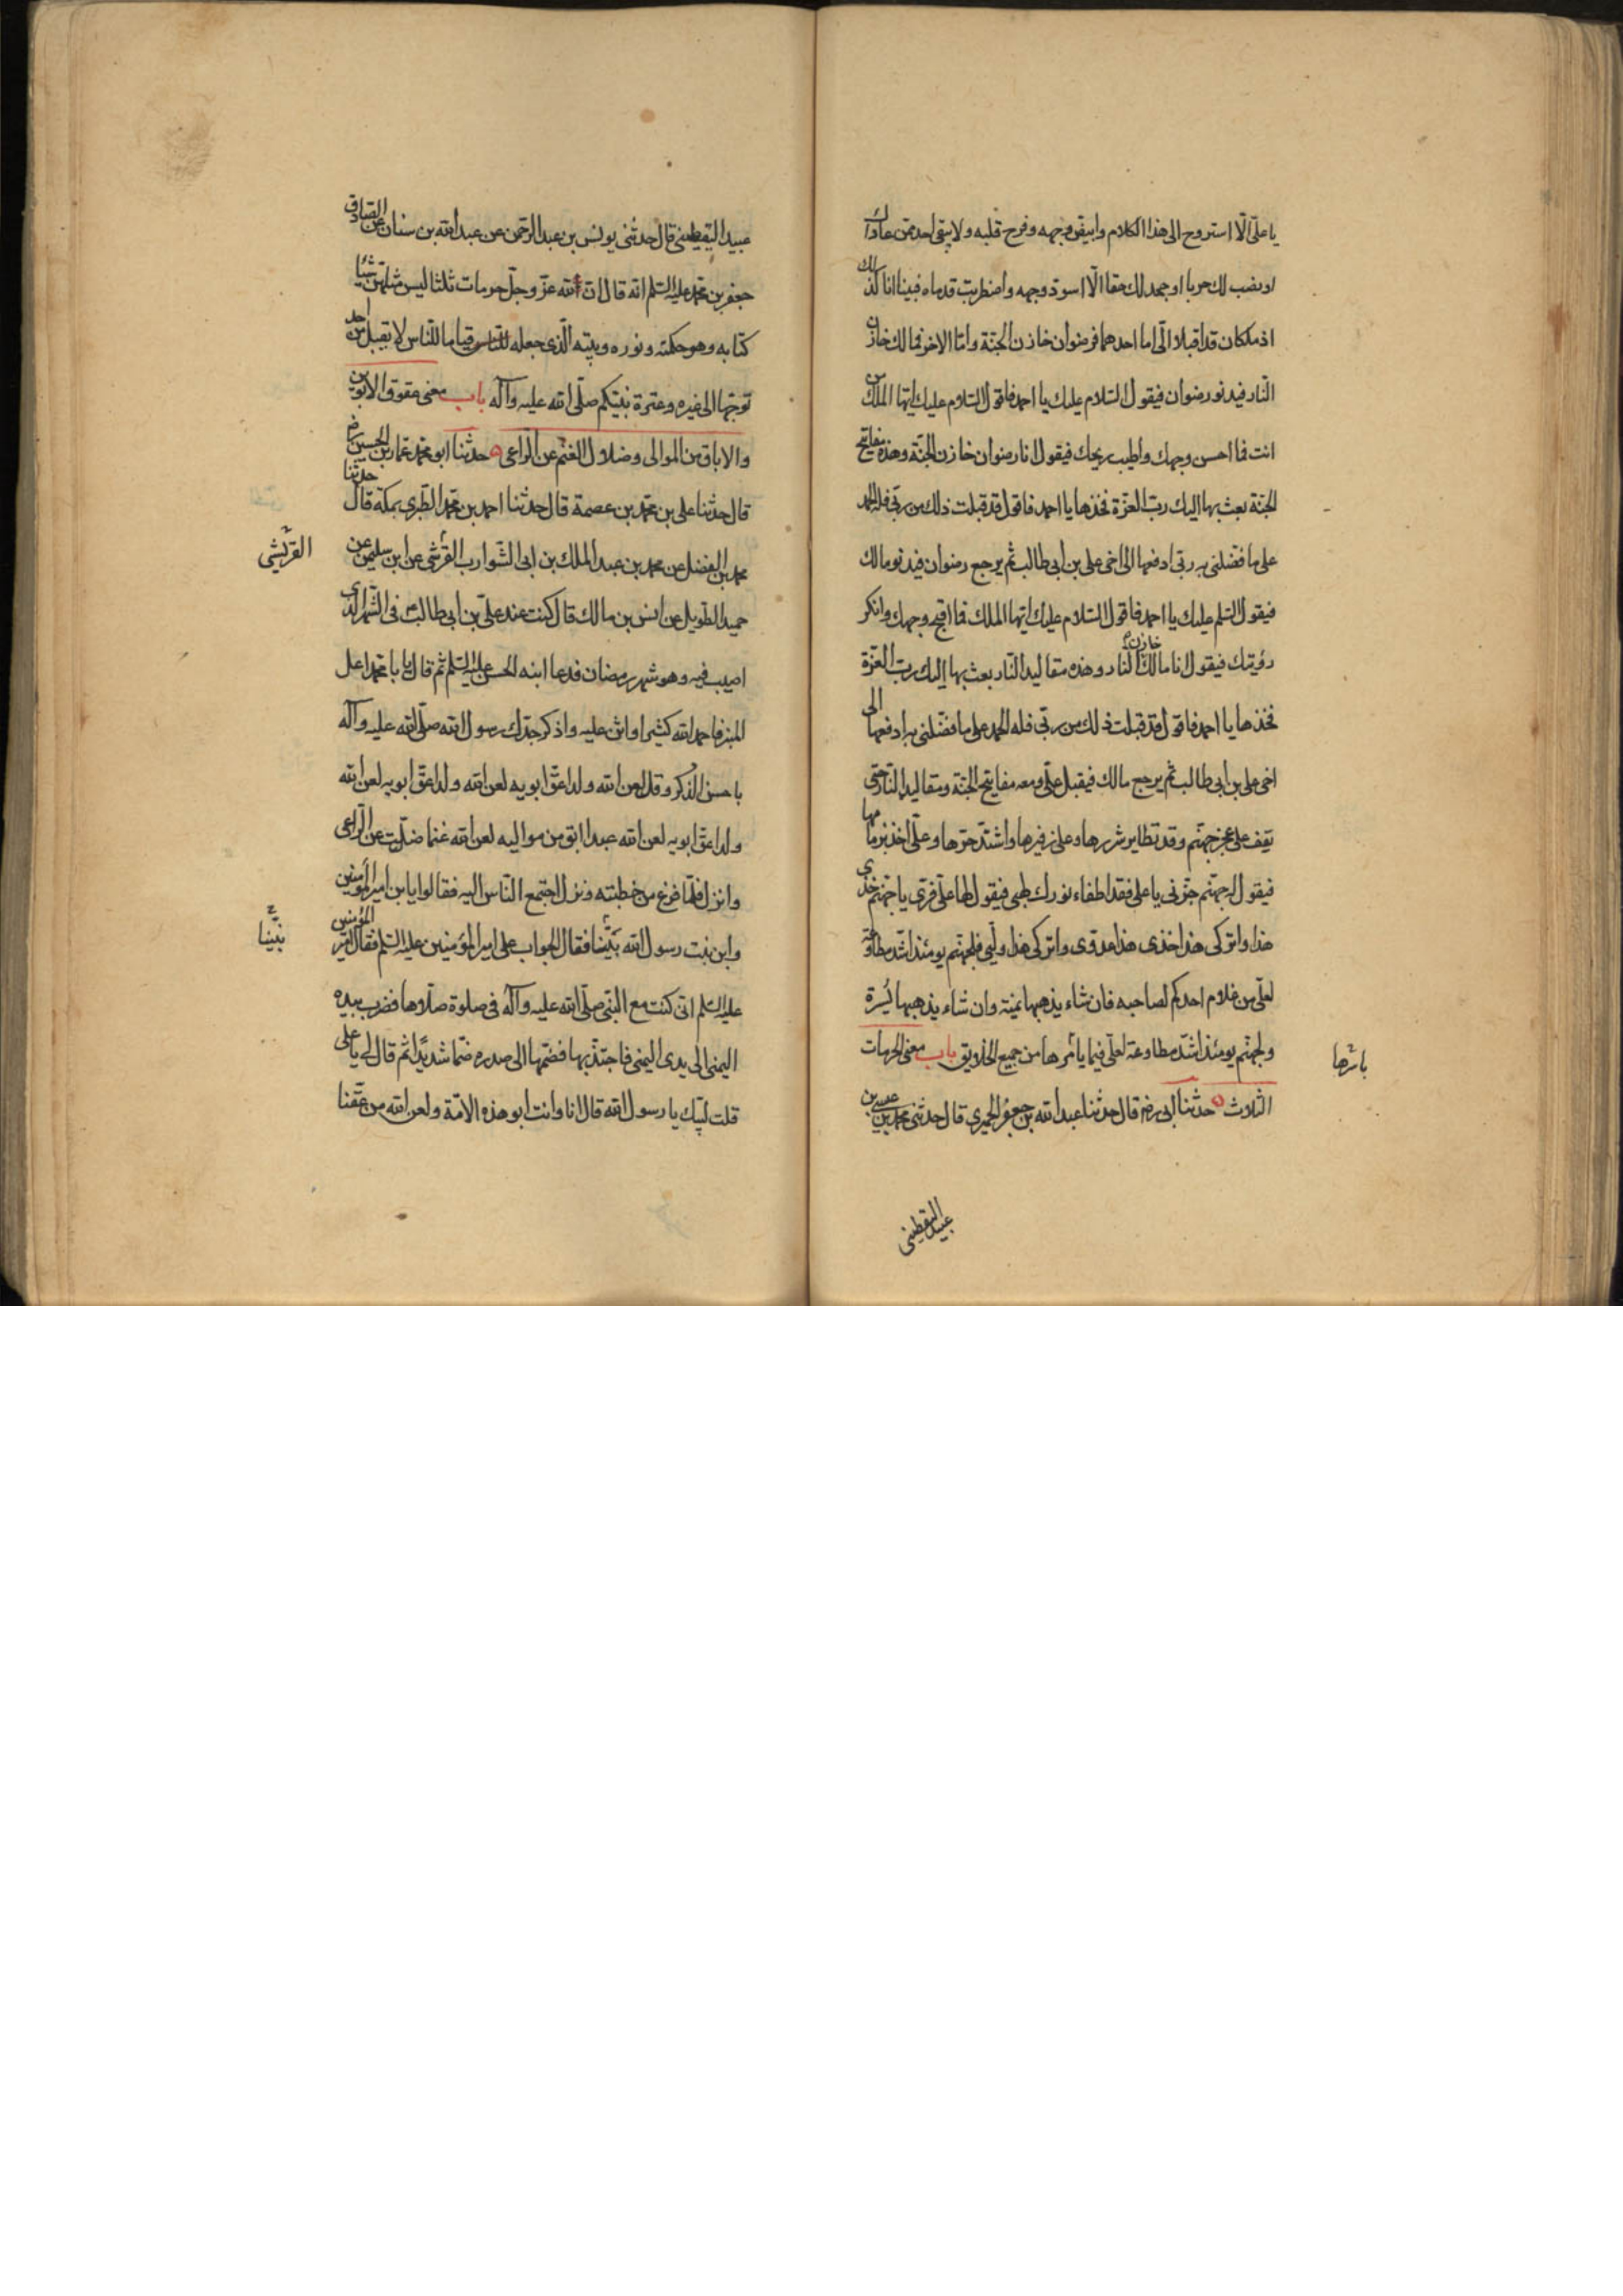 يا علي الا استروح الى هذا الكلام وابيض وجهه وفرح قلبه ولا يبقى احد ممن عاداك
او نصب لك حربا او جحد لك حقا الا اسود وجهه واضطربت قدماه فبينا انا كذلك
اذ ملكان قد اقبلا الي اما احدهما فرضوان خازن الجنة واما الاخر فمالك خازن
النار فيدنو رضوان فيقول السلام عليك يا احمد فاقول السلام عليك ايها الملك من
انت فما احسن وجهك واطيب ريحك فيقول انا رضوان خازن الجنة وهذه مفاتيح
الجنة بعث بها اليك رب العزة فخذها يا احمد فاقول قد قبلت ذلك من ربي فله الحمد
على ما فضلني به ربي ادفعها الى اخي علي بن ابي طالب ثم يرجع رضوان فيدنو مالك
فيقول السلم عليك يا احمد فاقول السلام عليك ايها الملك فما اقبح وجهك وانكر
رؤيتك فيقول انا مالك خازن النار وهذه مقاليد النار بعث بها اليك رب العزة
فخذها يا احمد فاقول قد قبلت ذلك من ربي فله الحمد على ما فضلني به ادفعها الى
اخي علي بن ابي طالب ثم يرجع مالك فيقبل علي ومعه مفاتيح الجنة ومقاليد النار حتى
يقف على عجز جهنم وقد تطاير شررها وعلى زفيرها واشتد حرها وعلي اخذ بزمامها
فيقول له جهنم جزني يا علي فقد اطفاء نورك لهبي فيقول لها علي قري يا جهنم خذي
هذا واتركي هذا خذي هذا عدوي واتركي هذا وليي فلجهنم يومئذ اشد مطاوعة
لعلي من غلام احدكم لصاحبه فان شاء يذهبها يمنة وان شاء يذهبها يسرة
ولجهنم يومئذ اشد مطاوعة لعلي فيما يأمرها من جميع الخلايق باب معنى الحرمات
الثلاث حدثنا ابي رضه قال حدثنا عبد الله بن جعفر الحميري قال حدثني محمد بن عيسى بن
عبيد اليقطيني
عبيد اليقطيني قال حدثني يونس بن عبد الرحمن عن عبد الله بن سنان عن الصادق
جعفر بن محمد عليه السلم انه قال ان لله عز وجل حرمات ثلثا ليس مثلهن شيئا
كتابه وهو حكمته ونوره وبيته الذي جعله للناس قياما للناس لا يقبل من احد
توجها الى غيره وعترة نبيكم صلى الله عليه وآله باب معنى عقوق الابوين
والاباق من الموالي وضلال الغنم عن الراعي حدثنا ابو محمد عمار بن الحسين رض
قال حدثنا علي بن محمد بن عصمة قال حدثنا احمد بن محمد الطبري بمكة قال حدثنا
محمد بن الفضل عن محمد بن عبد الملك بن ابي الشوارب القرشي عن ابن سليمن عن
القريشي
حميد الطويل عن انس بن مالك قال كنت عند علي بن ابي طالب في الشهر الذي
اصيب فيه وهو شهر رمضان فدعا ابنه الحسن عليه السلم ثم قال يا با محمد اعل
المنبر فاحمد الله كثيرا واثن عليه واذكر جدك رسول الله صلى الله عليه وآله
باحسن الذكر وقل لعن الله ولدا عق ابويه لعن الله ولدا عق ابويه لعن الله
ولدا عق ابويه لعن الله عبدا ابق من مواليه لعن الله غنما ضلت عن الراعي
وانزل فلما فرغ من خطبته ونزل اجتمع الناس اليه فقالوا يا بن امير المؤمنين
وابن بنت رسول الله نبئنا فقال الجواب على امير المؤمنين عليه السلم فقال امير المؤمنين
عليه السلم اني كنت مع النبي صلى الله عليه وآله في صلوة صلاها فضرب بيده
اليمنى الى يدي اليمنى فاجتذبها فضمها الى صدره ضما شديدا ثم قال لي يا علي
قلت لبيك يا رسول الله قال انا وانت ابو هذه الامة ولعن الله من عقنا